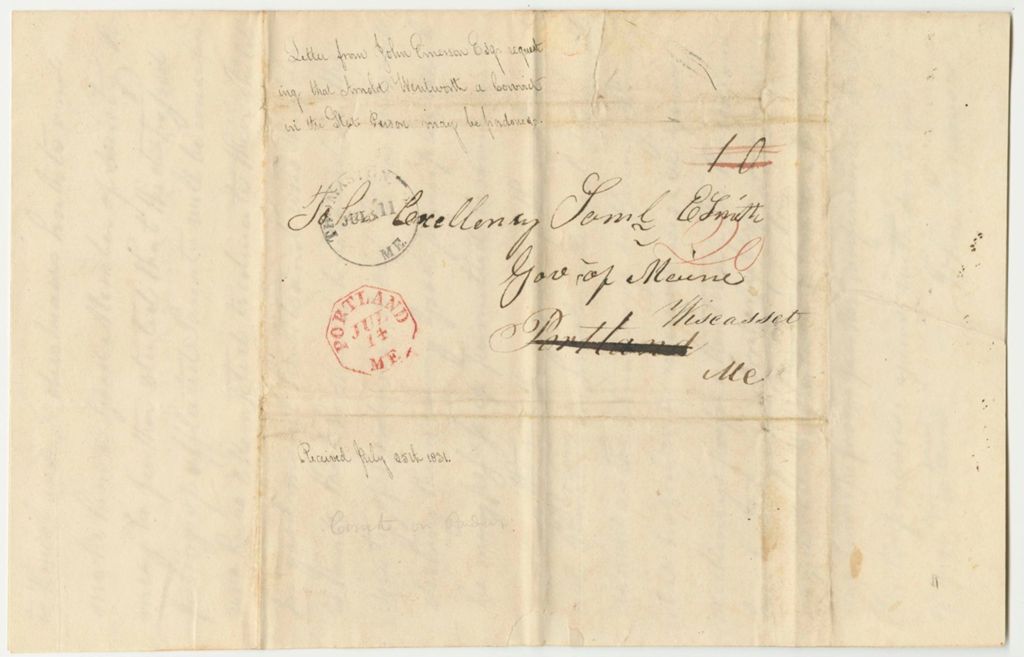 Letter from John Emerson Esqr request
ing that Arnold Wentworth a Convict
in the State Prison may be pardoned.
10
THOMASTON
JULY 11
ME.
To his Excellency Saml E Smith
Gov of Maine
Portland
Wiscasset
Me
PORTLAND
JUL
14
ME.
Received July 25th 1831.
on